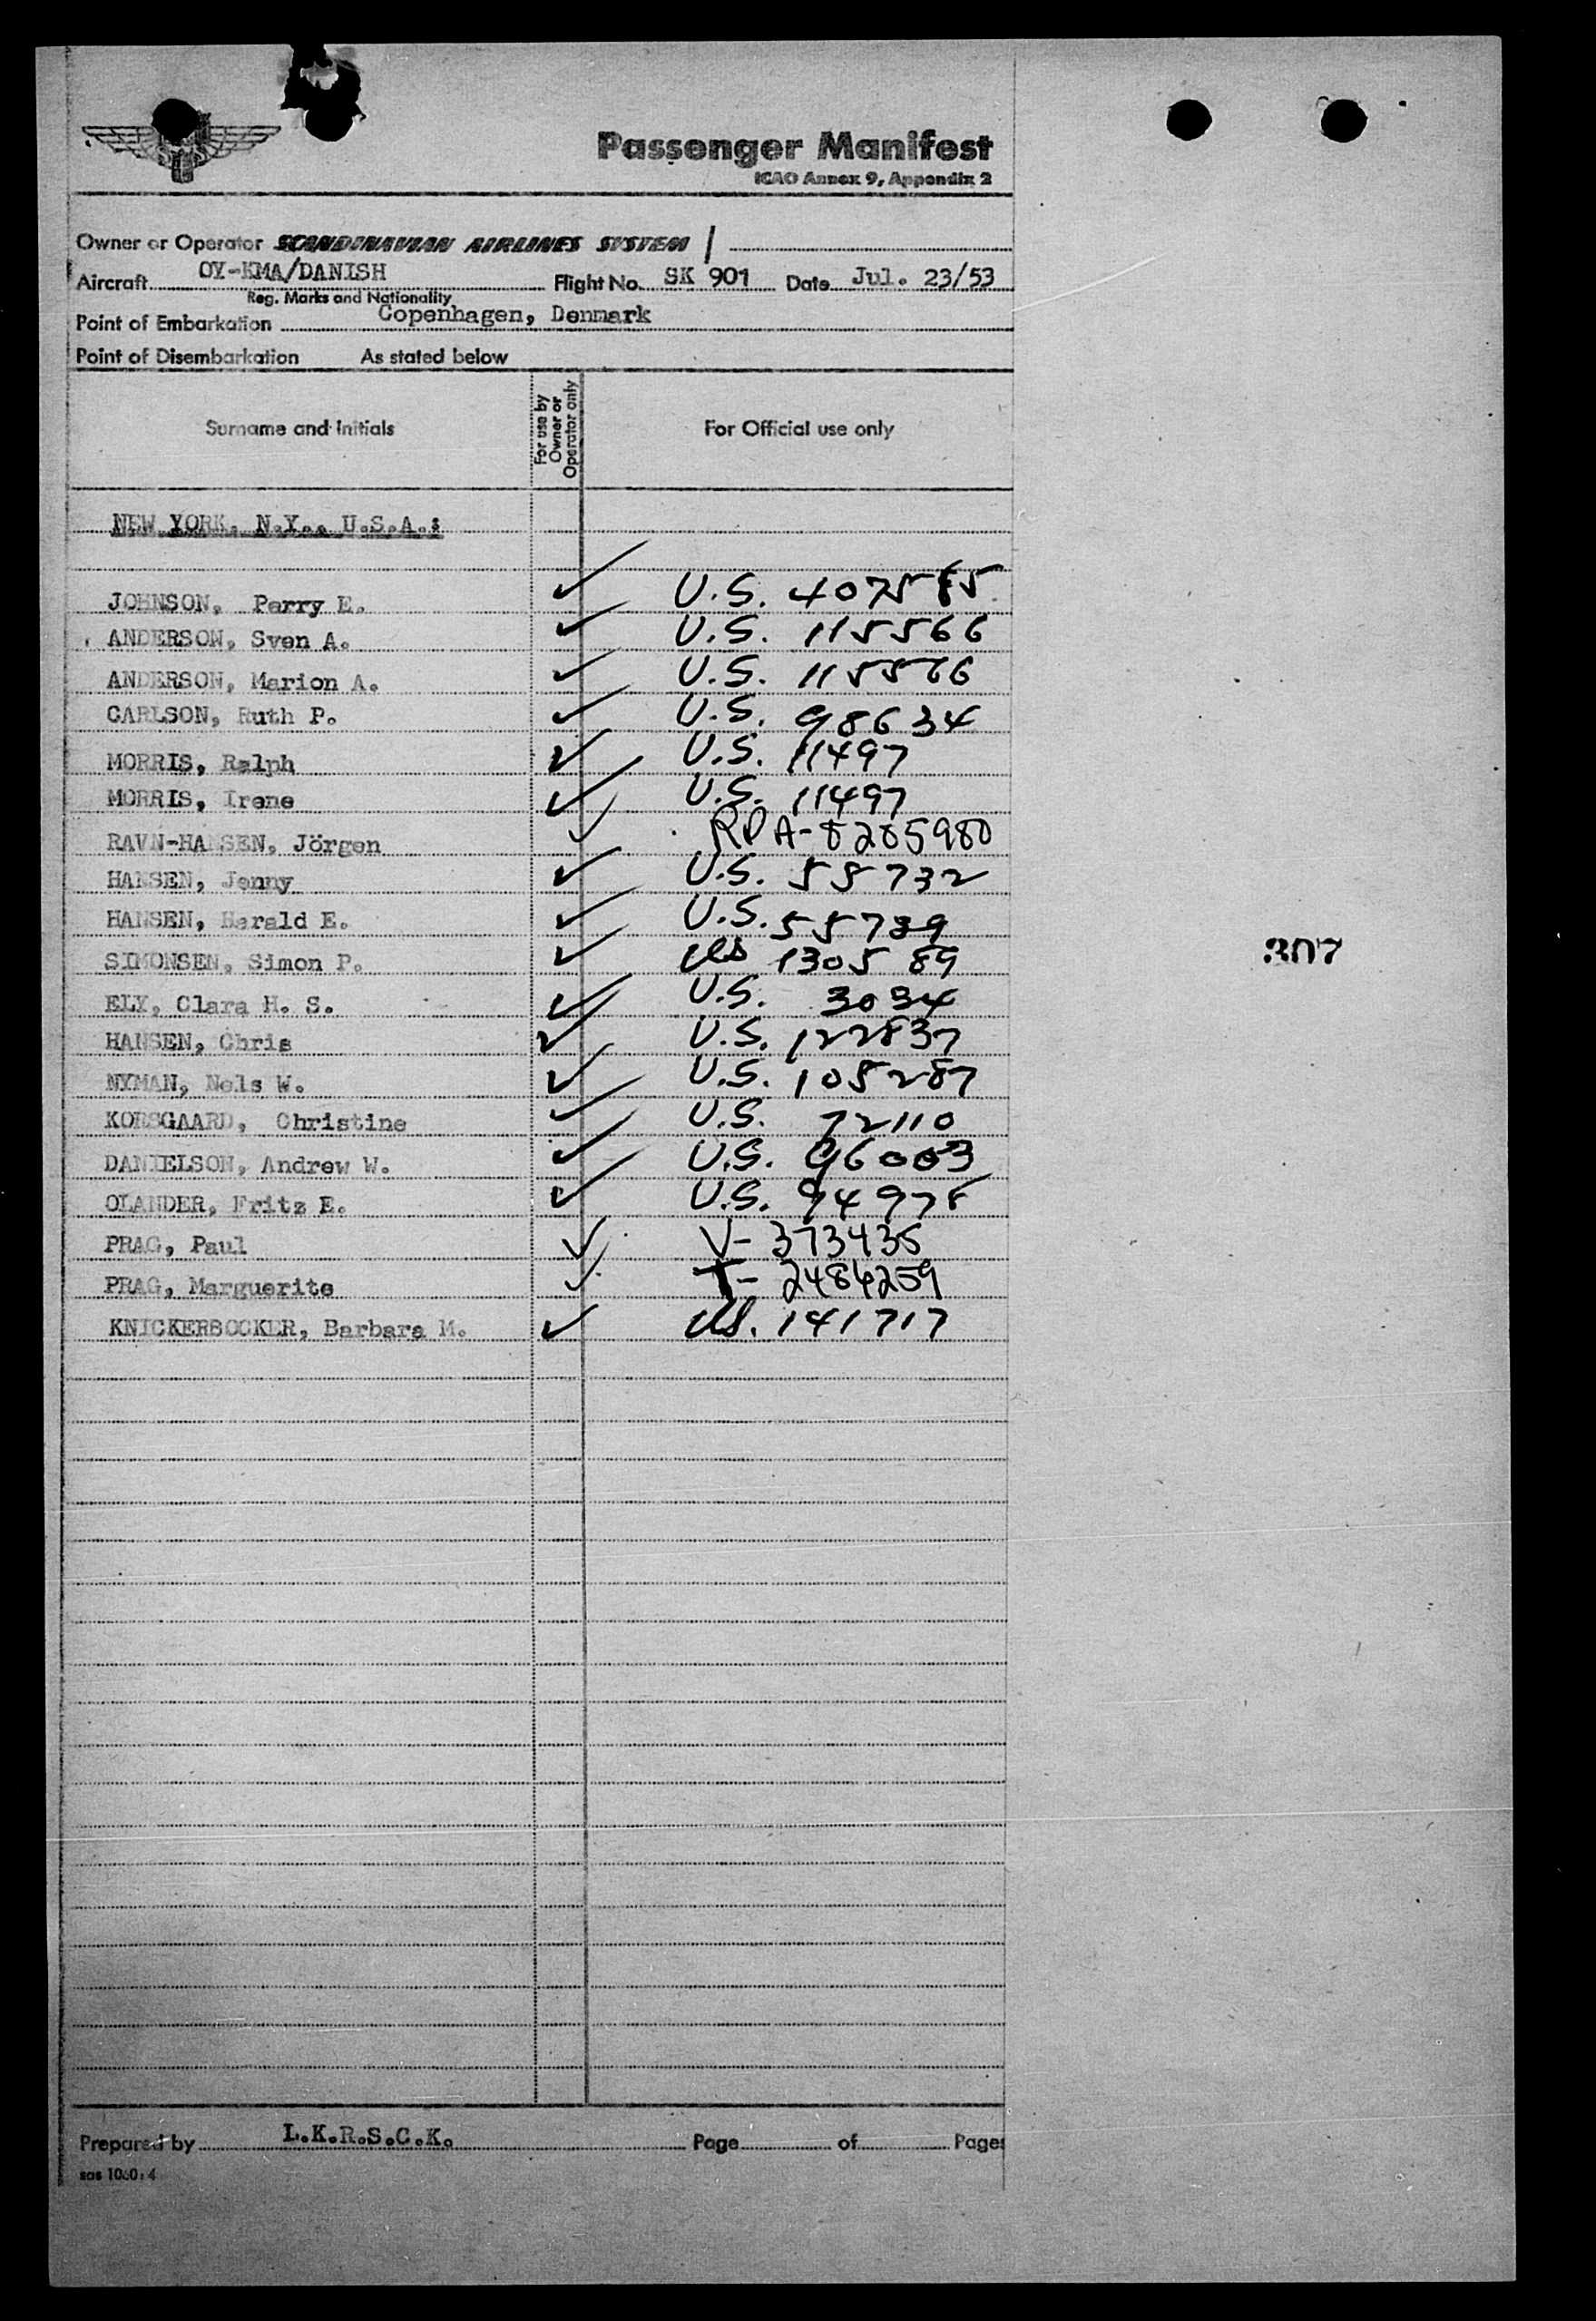 SAS
Passenger Manifest
ICAO Annex 9, Appendix 2
Owner or Operator SCANDINAVIAN AIRLINES SYSTEM /
Aircraft OY-KMA/DANISH Flight No. SK 901 Date Jul. 23/53
Reg. Marks and Nationality
Point of Embarkation Copenhagen, Denmark
Point of Disembarkation As stated below
Surname and Initials For use by Owner or Operator only For Official use only
NEW YORK, N.Y., U.S.A.:
JOHNSON, Perry E. ✓ U.S. 407585
ANDERSON, Sven A. ✓ U.S. 115566
ANDERSON, Marion A. ✓ U.S. 115566
CARLSON, Ruth P. ✓ U.S. 98634
MORRIS, Ralph ✓ U.S. 11497
MORRIS, Irene ✓ U.S. 11497
RAVN-HANSEN, Jörgen ✓ RP A-8285980
HANSEN, Jenny ✓ U.S. 55732
HANSEN, Harald E. ✓ U.S. 55739
SIMONSEN, Simon P. ✓ US 130589
ELY, Clara H. S. ✓ U.S. 3034
HANSEN, Chris ✓ U.S. 122837
NYMAN, Nels W. ✓ U.S. 105287
KORSGAARD, Christine ✓ U.S. 72110
DANIELSON, Andrew W. ✓ U.S. 96003
OLANDER, Fritz E. ✓ U.S. 94978
PRAG, Paul ✓ V- 373435
PRAG, Marguerite ✓ T- 2484259
KNICKERBOCKER, Barbara M. ✓ US. 141717
307
Prepared by L.K.R.S.C.K. Page of Pages
sas 1060:4